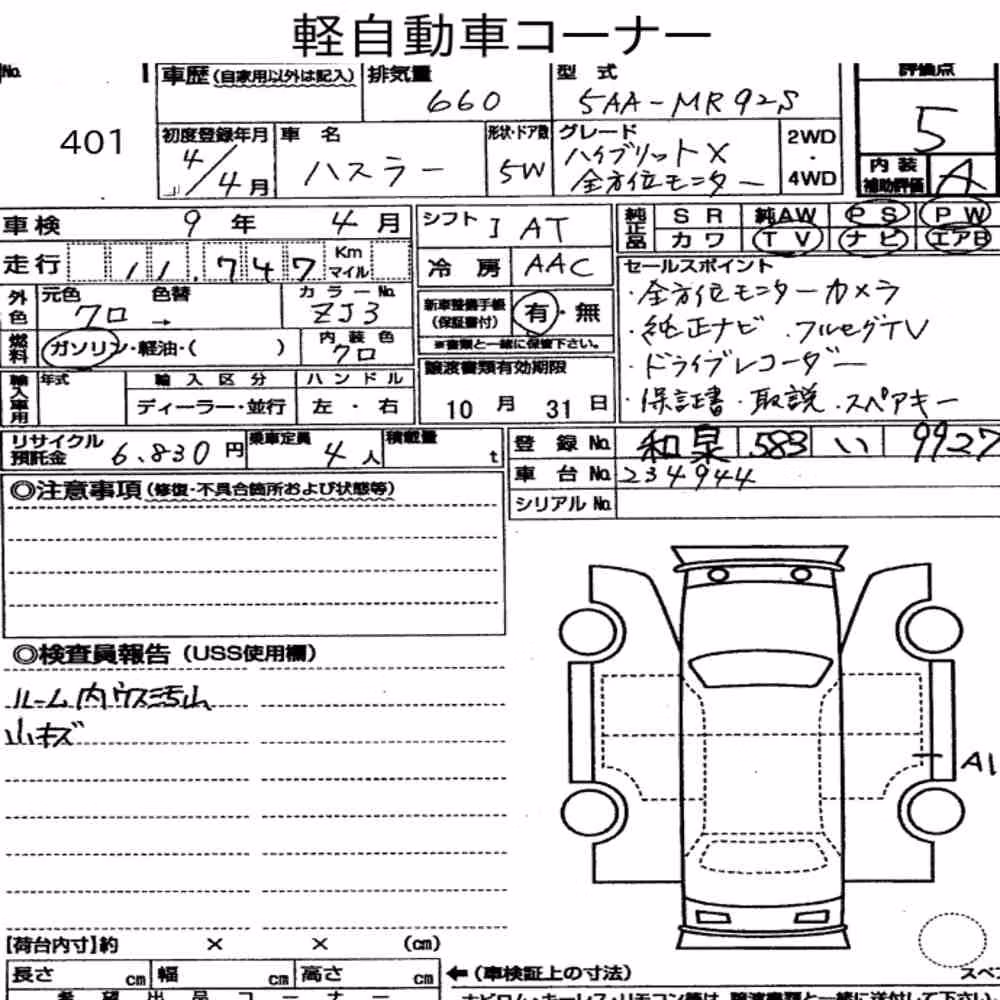 軽自動車コーナー
No. 401
車歴(自家用以外は記入) 排気量 660 型式 5AA-MR92S 評価点 5
初度登録年月 4/4月 車名 ハスラー 形状・ドア数 5W グレード ハイブリットX 全方位モニター 2WD・4WD 内装補助評価 A
車検 9年 4月 シフト I AT 純正品 SR 純AW PS PW
カワ TV ナビ エアB
走行 11,747 Km マイル 冷房 AAC
外色 元色 クロ 色替 → カラーNo. ZJ3
新車整備手帳(保証書付) 有・無
※書類と一緒に保管下さい。
燃料 ガソリン・軽油・( ) 内装色 クロ
輸入車用 年式 輸入区分 ディーラー・並行 ハンドル 左・右
譲渡書類有効期限 10月 31日
セールスポイント
・全方位モニターカメラ
・純正ナビ ・フルセグTV
・ドライブレコーダー
・保証書・取説・スペアキー
リサイクル預託金 6,830円 乗車定員 4人 積載量 t
登録No. 和泉 583 い 9927
車台No. 234944
シリアルNo.
◎注意事項(修復・不具合箇所および状態等)
◎検査員報告(USS使用欄)
ルーム内ウス汚小
小キズ
A1
【荷台内寸】約 × × (cm)
長さ cm 幅 cm 高さ cm
←(車検証上の寸法)
スペ
希望出品コーナー